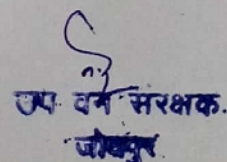 उप वन संरक्षक.
जोधपुर